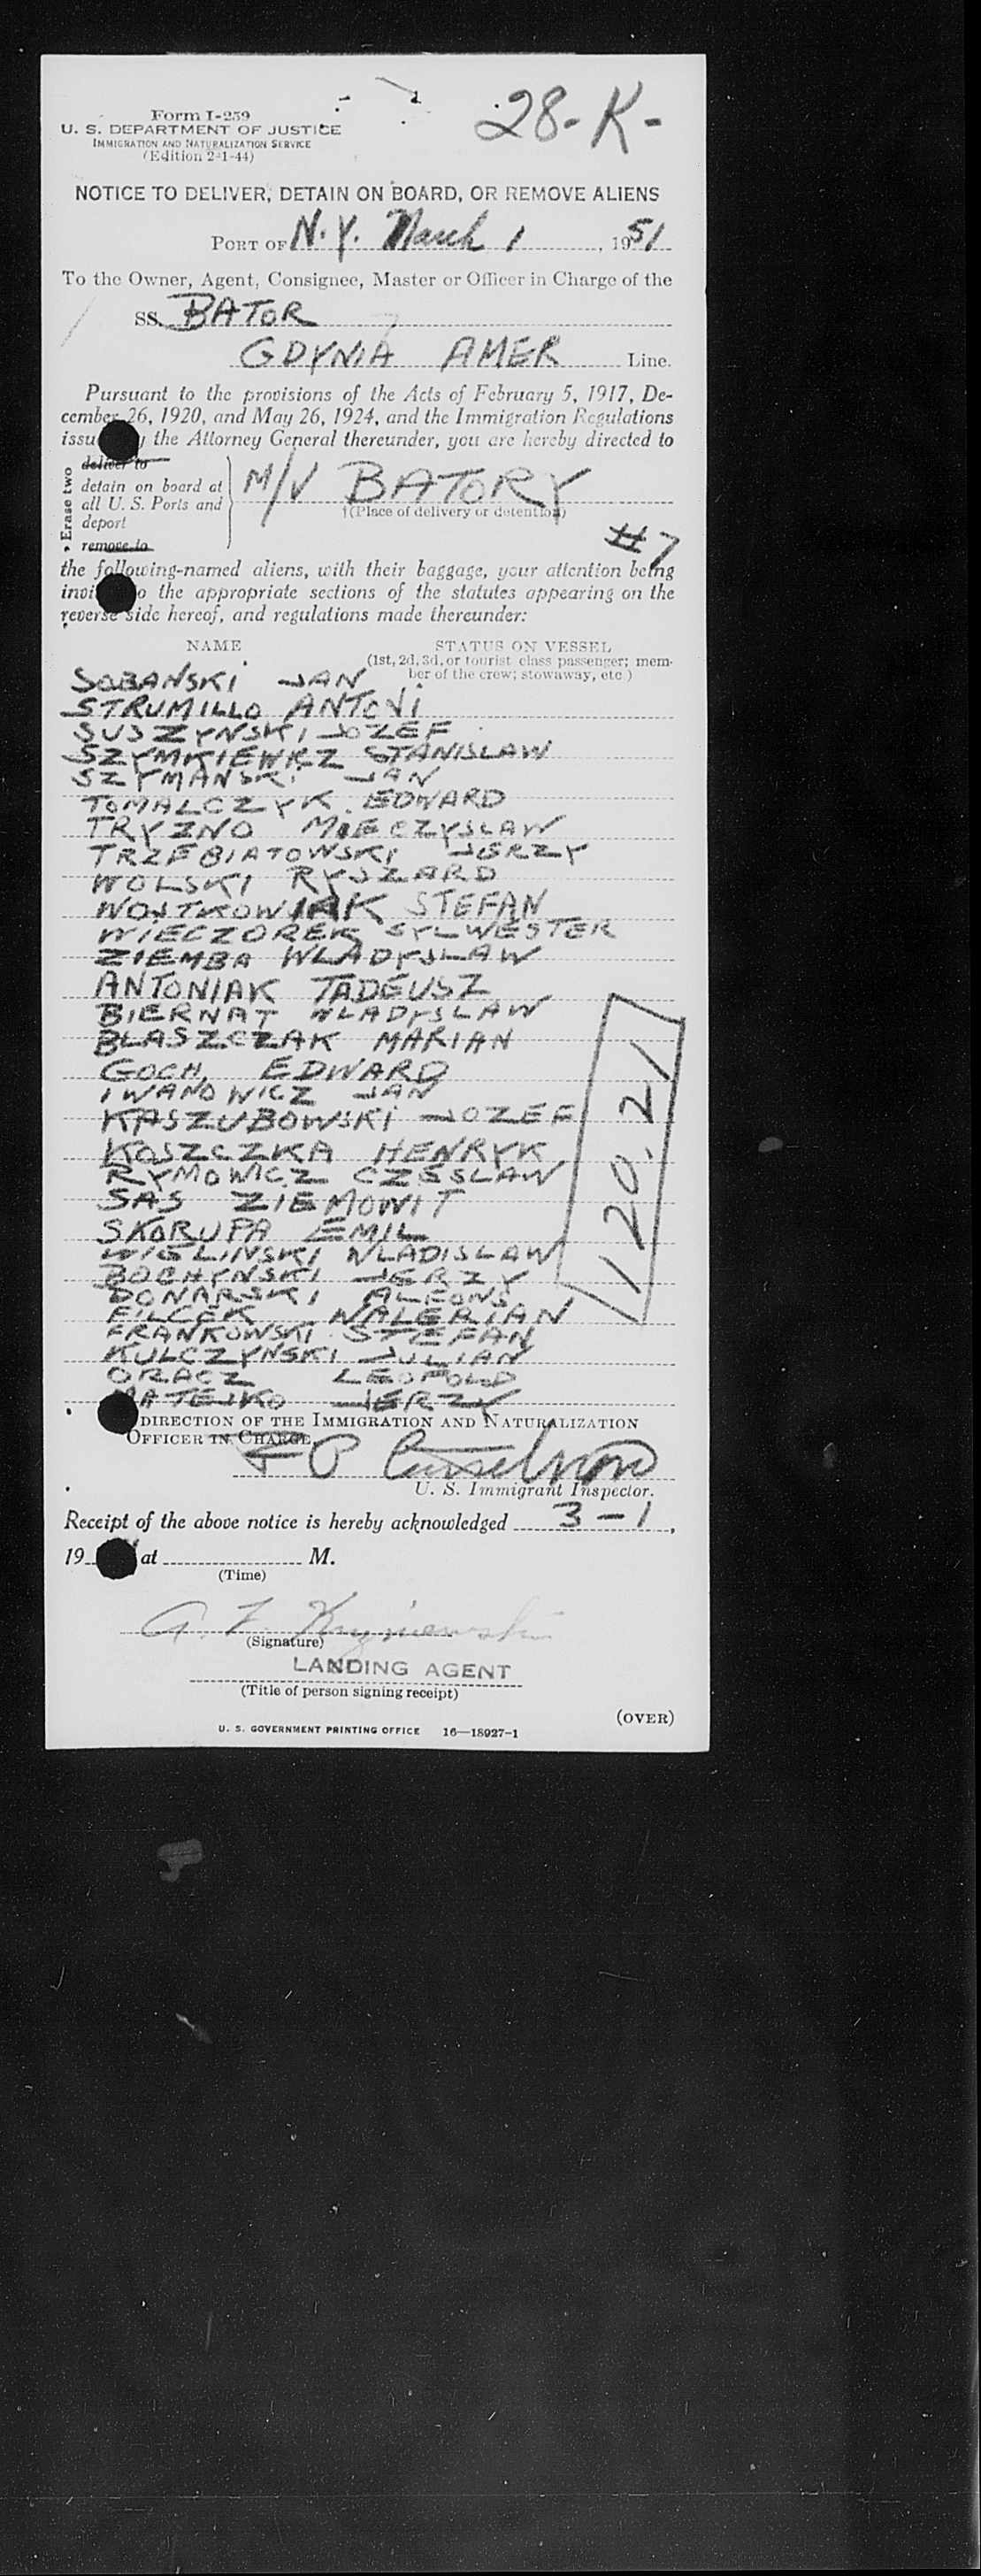 28-K-
Form I-259
U. S. DEPARTMENT OF JUSTICE
IMMIGRATION AND NATURALIZATION SERVICE
(Edition 2-1-44)
NOTICE TO DELIVER, DETAIN ON BOARD, OR REMOVE ALIENS
PORT OF N.Y. March 1, 1951
To the Owner, Agent, Consignee, Master or Officer in Charge of the
SS. BATOR
GDYNIA AMER Line.
Pursuant to the provisions of the Acts of February 5, 1917, De-
cember 26, 1920, and May 26, 1924, and the Immigration Regulations
issu y the Attorney General thereunder, you are hereby directed to
* Erase two
deliver to
detain on board at
all U. S. Ports and
deport
remove to
M/V BATORY
†(Place of delivery or detention)
#7
the following-named aliens, with their baggage, your attention being
invi o the appropriate sections of the statutes appearing on the
reverse side hereof, and regulations made thereunder:
NAME STATUS ON VESSEL
(1st, 2d, 3d, or tourist class passenger; mem-
ber of the crew; stowaway, etc.)
SOBANSKI JAN
STRUMILLO ANTONI
SUSZYNSKI JOZEF
SZYMKIEWICZ STANISLAW
SZYMANSKI JAN
TOMALCZYK EDWARD
TRYZNO MIECZYSLAW
TRZEBIATOWSKI JERZY
WOLSKI RYSZARD
WOJTKOWIAK STEFAN
WIECZOREK SYLWESTER
ZIEMBA WLADYSLAW
ANTONIAK TADEUSZ
BIERNAT WLADYSLAW
BLASZCZAK MARIAN
GOCH EDWARD
IWANOWICZ JAN
KASZUBOWSKI JOZEF
KOSZCZKA HENRYK
RYMOWICZ CZESLAW
SAS ZIEMOWIT
SKORUPA EMIL
WIELINSKI WLADISLAW
BOCHYNSKI JERZY
DONARSKI ALFONS
FILCEK WALERIAN
FRANKOWSKI STEFAN
KULCZYNSKI JULIAN
ORACZ LEOPOLD
MATEJKO JERZY
120.21
DIRECTION OF THE IMMIGRATION AND NATURALIZATION
OFFICER IN CHARGE.
U. S. Immigrant Inspector.
Receipt of the above notice is hereby acknowledged 3-1,
19 at M.
(Time)
(Signature)
LANDING AGENT
(Title of person signing receipt)
(OVER)
U. S. GOVERNMENT PRINTING OFFICE 16—18927-1